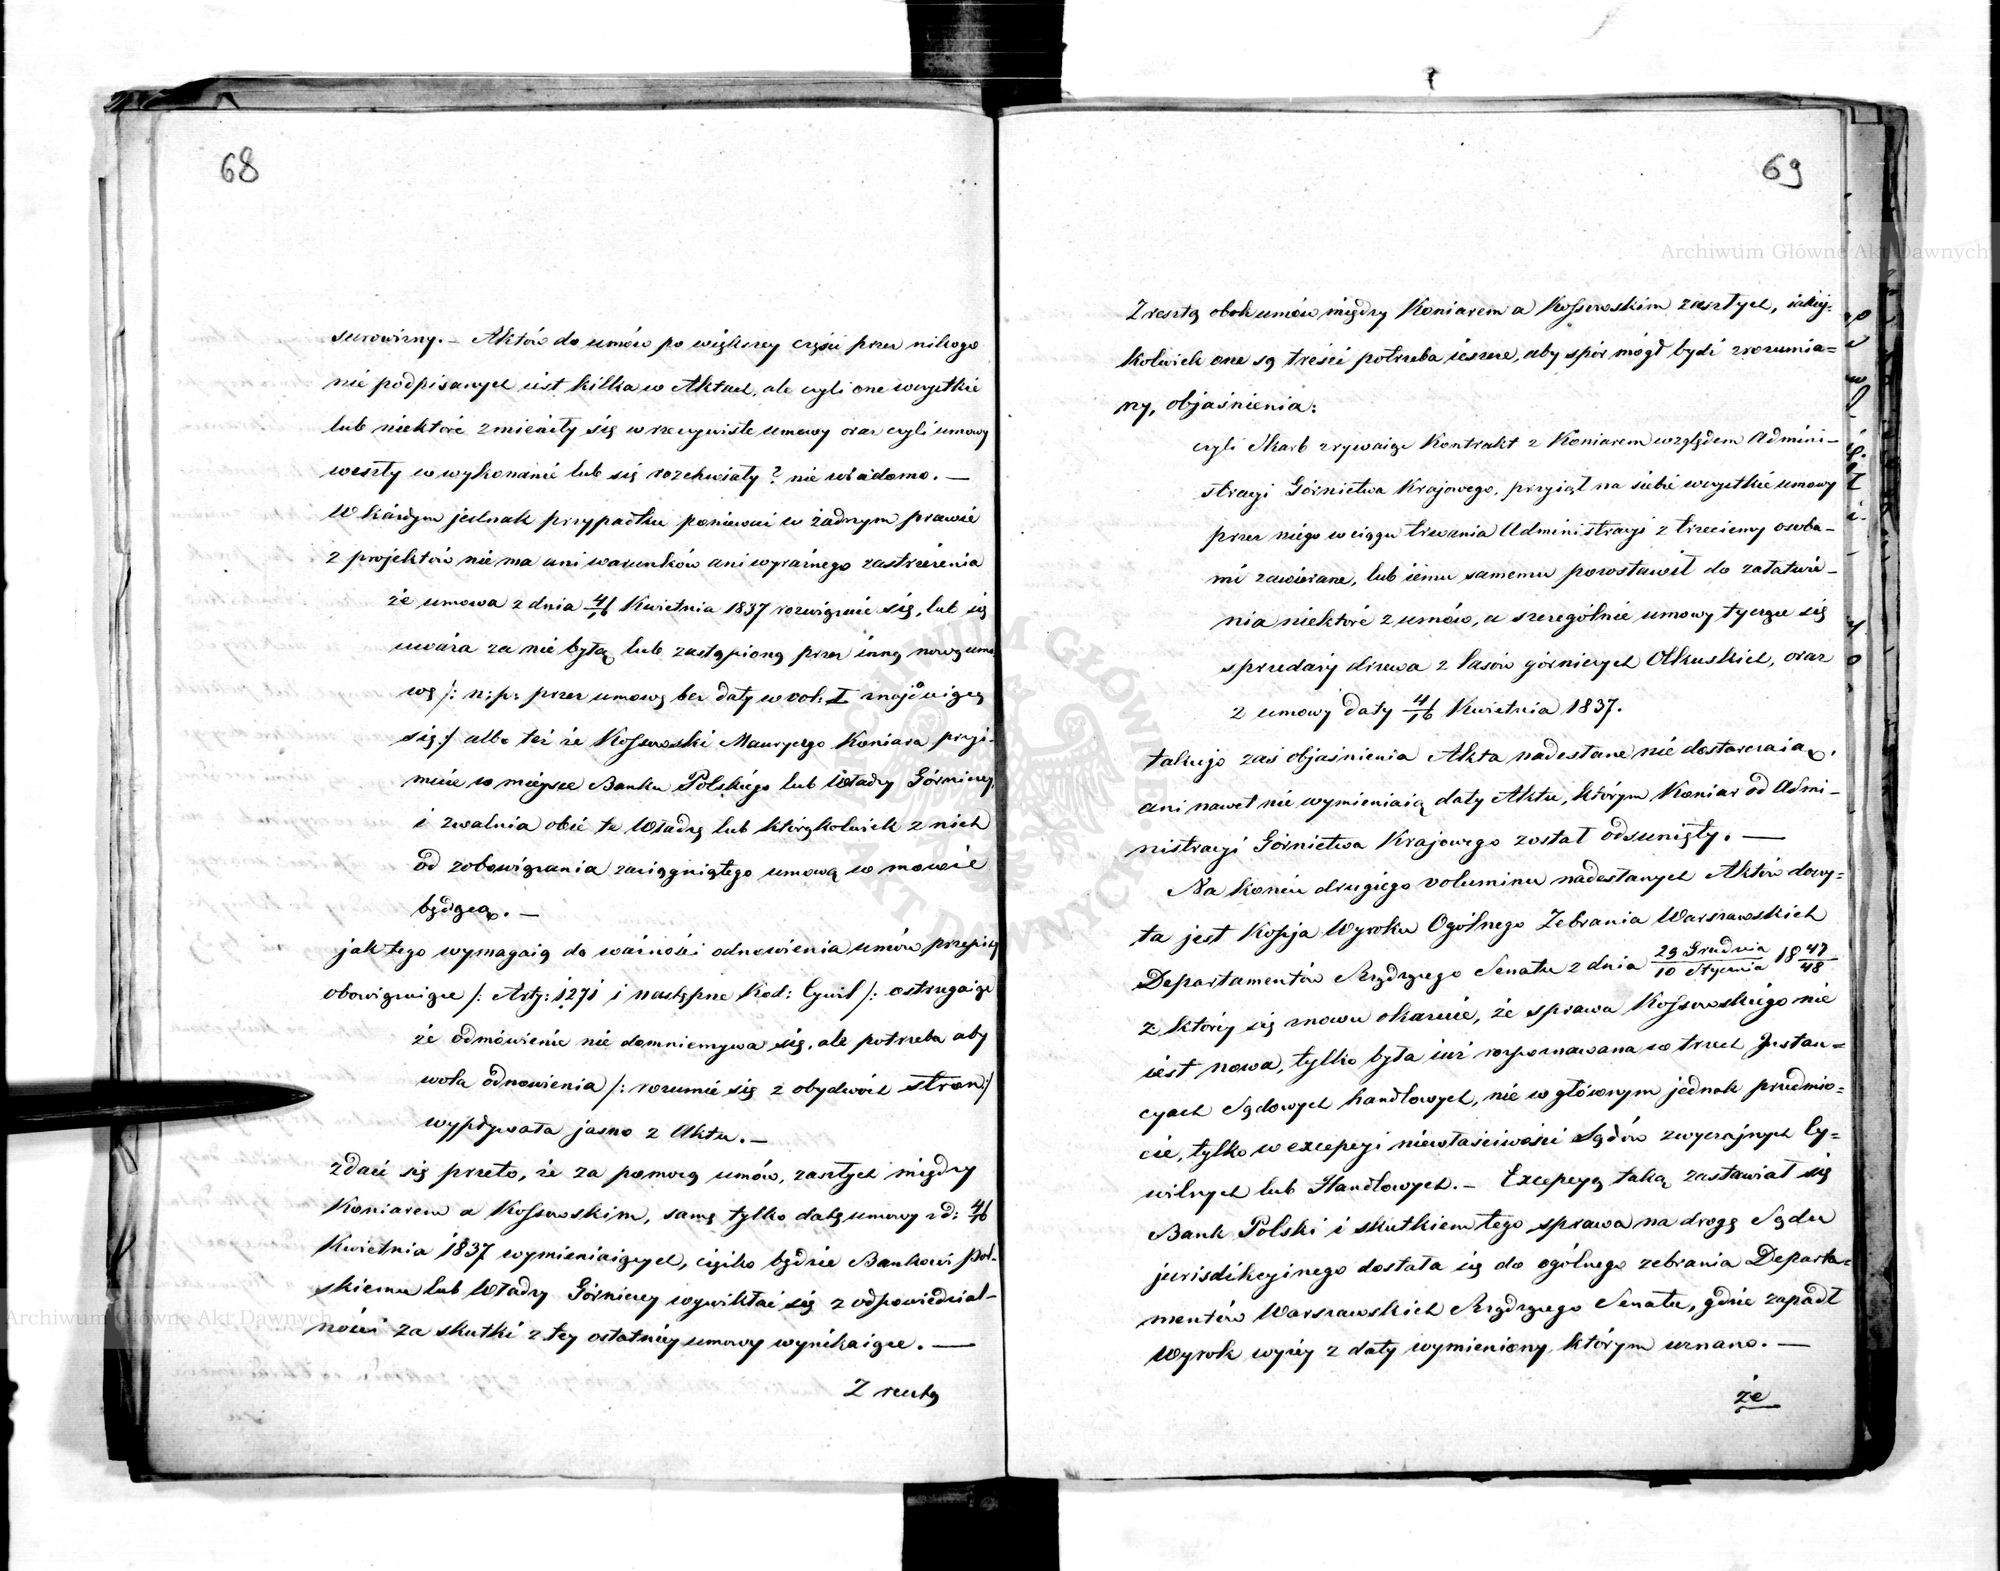 68
surowizny. – Aktów do umów po większey części przez nikogo
nie podpisanych iest kilka w Aktach, ale czyli one wszystkie
lub niektóre zmieniły się w rzeczywiste umowy oraz czyli umowy
weszły w wykonanie lub się rozchwiały? nie wiadomo. –
W każdym jednak przypadku ponieważ w żadnym prawie
z projektów nie ma ani warunków ani wyraźnego zastrzeżenia
że umowa z dnia 4/16 Kwietnia 1837 rozwięzuie się, lub się
uważa za nie byłą lub zastąpioną przez inną nową umo
wę /: n: p: przez umowę bez daty w vol: I znajduiącą
się :/ albo też że Kossowski Maurycego Koniara przyi-
muie w mieysce Banku Polskiego lub Władzy Górniczey
i zwalnia obie te Władze lub którąkolwiek z nich
od zobowiązania zaciągniętego umową w mowie
będącą. –
jak tego wymagaią do ważności odnowienia umów przepisy
obowięzuiące /: Arty: 1271 i następne Kod: Cywil /: ostrzegaiąc
że odmówienie nie domniemywa się, ale potrzeba aby
wola odnowienia /: rozumie się z obydwóch stron :/
wypływała jasno z Aktu. –
zdaie się przeto, że za pomocą umów, zaszłych między
Koniarem a Kossowskim, samą tylko datę umowy z d: 4/16
Kwietnia 1837 wymieniaiących, ciężko będzie Bankowi Pol-
skiemu lub Władzy Górniczey wywikłać się z odpowiedzial-
ności za skutki z tey ostatniey umowy wynikaiące. –
Z resztą
69
Z resztą obok umów między Koniarem a Kossowskim zaszłych, iakiéj-
kolwiek one są treści potrzeba ieszcze, aby spór mógł bydź zrozumia=
ny, objaśnienia:
czyli Skarb zrywaiąc Kontrakt z Koniarem względem Admini-
stracyi Górnictwa Krajowego, przyiął na siebie wszystkie umowy
przez niego w ciągu trwania Administracyi z trzeciemy osoba-
mi zawierane, lub iemu samemu pozostawił do załatwie-
nia niektóre z umów, a szczególnie umowy tyczące się
sprzedaży drzewa z lasów górniczych Olkuskich, oraz
z umowy daty 4/16 Kwietnia 1837.
takiego zaś objaśnienia Akta nadesłane nie dostarczaią,
ani nawet nie wymieniaią daty Aktu, którym Koniar od Admi-
nistracyi Górnictwa Krajowego został odsunięty. –
Na końcu drugiego voluminu nadesłanych Aktów dowy=
ta jest Kopja Wyroku Ogólnego Zebrania Warszawskich
Departamentów Rządzącego Senatu z dnia 29 Grudnia/10 Stycznia 18 47/48
z którey się znowu okazuie, że sprawa Kossowskiego nie
iest nowa, tylko była iuż rozpoznawana w trzech Instan=
cyach Sądowych handlowych, nie w głównym jednak przedmio=
cie, tylko w excepcyi niewłaściwości Sądów zwyczajnych Cy=
wilnych lub Handlowych. – Excepcyą taką zastawiał się
Bank Polski i skutkiem tego sprawa na drogę Sądu
jurisdikcyinego dostała się do ogólnego zebrania Departa=
mentów Warszawskich Rządzącego Senatu, gdzie zapadł
Wyrok wyżey z daty wymieniony, którym uznano. –
że
Archiwum Główne Akt Dawnych
Archiwum Główne Akt Dawnych
ARCHIWUM GŁÓWNE AKT DAWNYCH